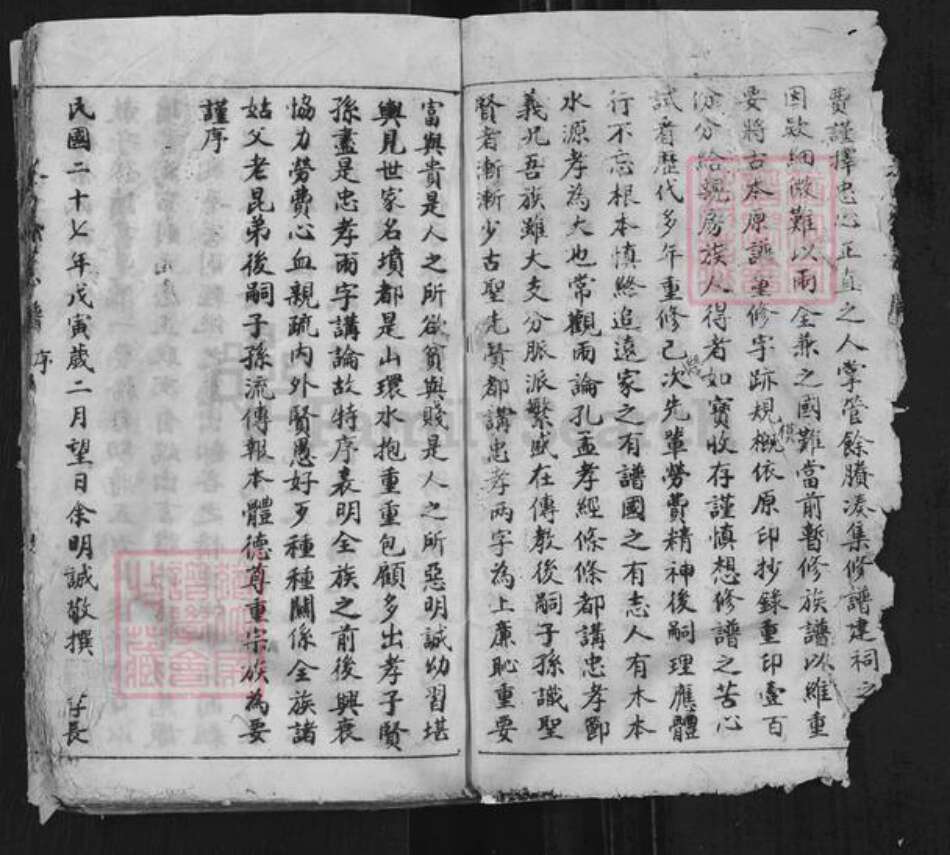 費謹擇忠心正直之人掌管餘賸湊集修譜建祠之
因欵細微難以兩全兼之國難當前暫修族譜以維重
要將古本原譜重修字跡規模概依原印抄錄重印壹百
份分給親房族人得者如寶收存謹慎想修譜之苦心
試看歷代多年重修己次先輩勞費精神後嗣理應體
行不忘根本慎終追遠家之有譜國之有志人有木本
水源孝為大也常觀兩論孔孟孝經條條都講忠孝節
義凡吾族雖大支分脈派繁盛在傳教後嗣子孫識聖
賢者漸漸少古聖先賢都講忠孝兩字為上廉恥重要
富與貴是人之所欲貧與賤是人之所惡明誠幼習堪
輿見世家名墳都是山環水抱重重包顧多出孝子賢
孫盡是忠孝兩字講論故特序表明全族之前後興衰
協力勞費心血親疏內外賢愚好歹種種關係全族諸
姑父老昆弟後嗣子孫流傳報本體德尊重宗族為要
謹序
民國二十七年戊寅歲二月望日余明誠敬撰
序